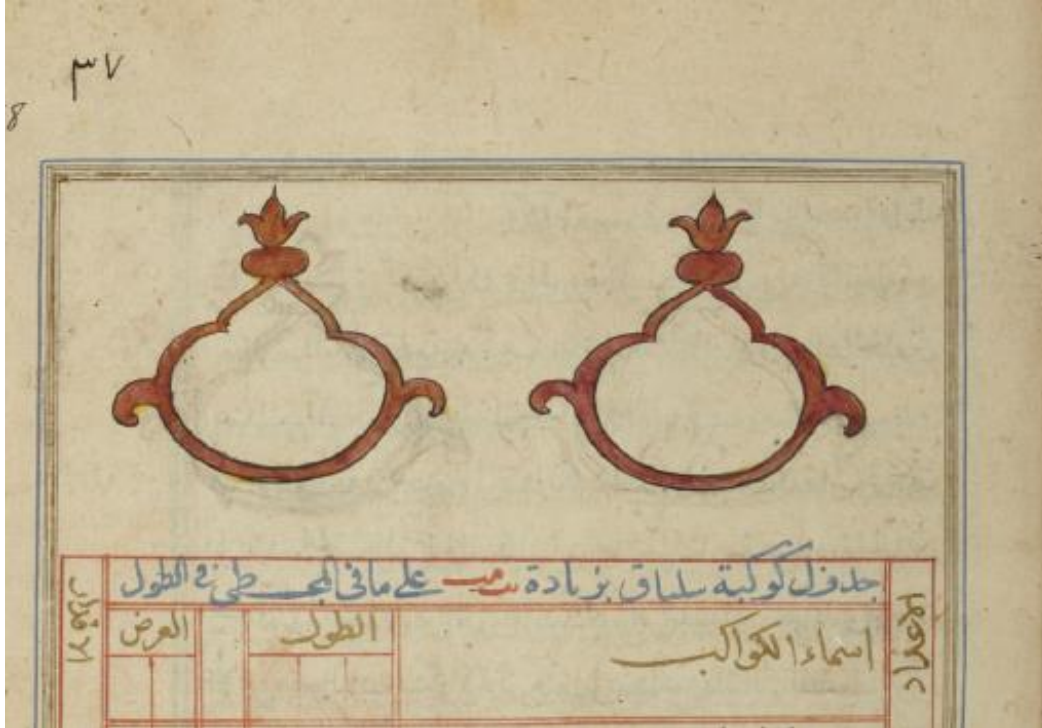 ٣٧
8
جدول كوكبة سلياق بزيادة يب مب على ما في المجسطي في الطول
الاعداد
اسماء الكواكب
الطول
العرض
الاقدار